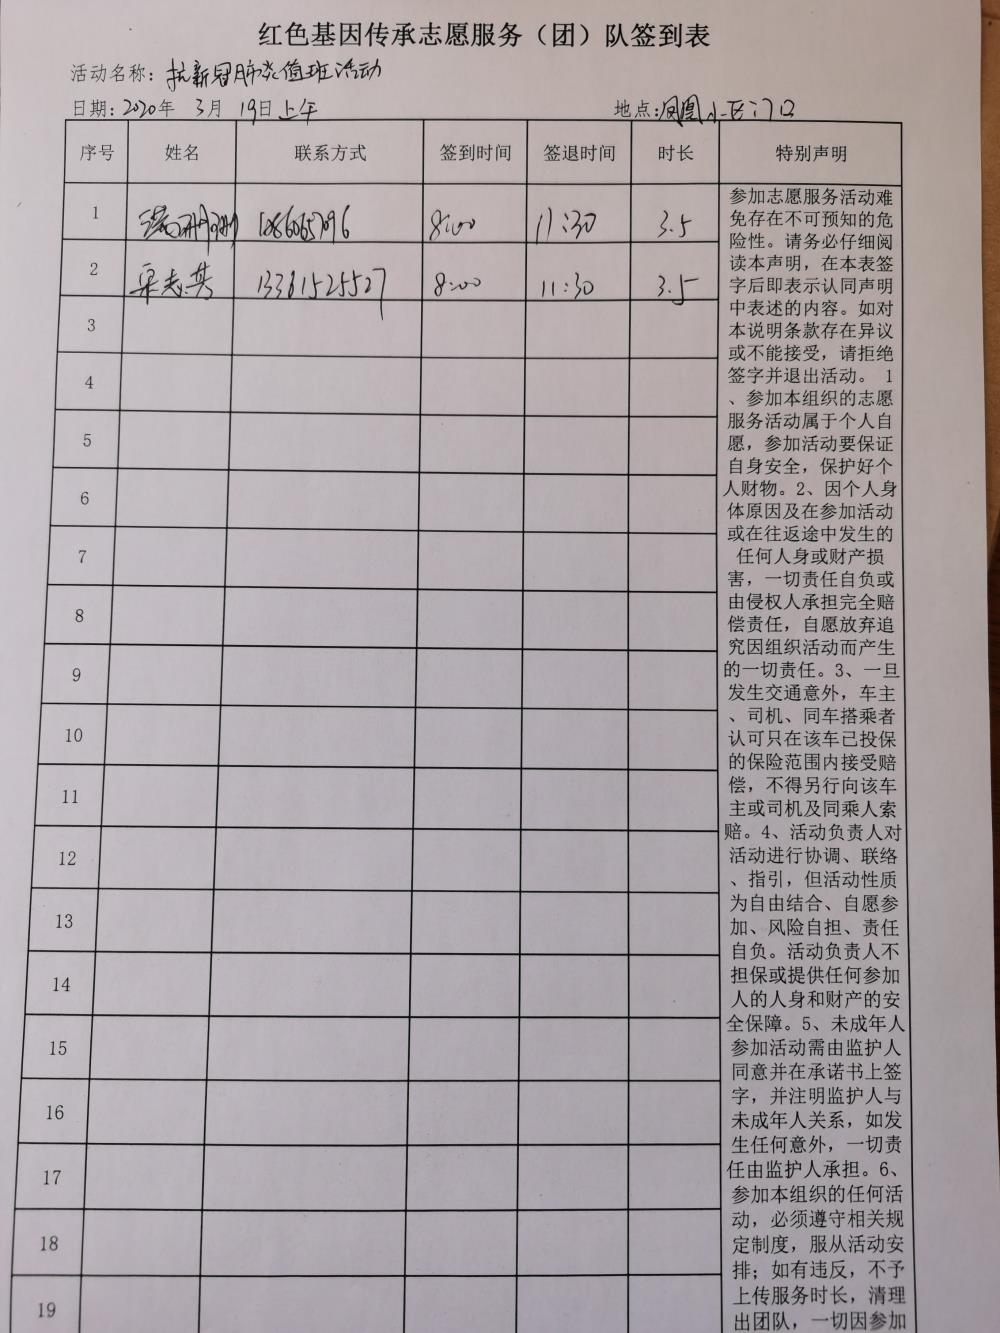 红色基因传承志愿服务（团）队签到表
活动名称：抗新冠肺炎值班活动
日期：2020年 3月 19日上午 地点：凤凰小区门口
序号 姓名 联系方式 签到时间 签退时间 时长 特别声明
1 8:00 11:30 3.5
2 梁志芬 13361525527 8:00 11:30 3.5
3
4
5
6
7
8
9
10
11
12
13
14
15
16
17
18
19
参加志愿服务活动难
免存在不可预知的危
险性。请务必仔细阅
读本声明，在本表签
字后即表示认同声明
中表述的内容。如对
本说明条款存在异议
或不能接受，请拒绝
签字并退出活动。 1
、参加本组织的志愿
服务活动属于个人自
愿，参加活动要保证
自身安全，保护好个
人财物。2、因个人身
体原因及在参加活动
或在往返途中发生的
任何人身或财产损
害，一切责任自负或
由侵权人承担完全赔
偿责任，自愿放弃追
究因组织活动而产生
的一切责任。3、一旦
发生交通意外，车主
、司机、同车搭乘者
认可只在该车已投保
的保险范围内接受赔
偿，不得另行向该车
主或司机及同乘人索
赔。4、活动负责人对
活动进行协调、联络
、指引，但活动性质
为自由结合、自愿参
加、风险自担、责任
自负。活动负责人不
担保或提供任何参加
人的人身和财产的安
全保障。5、未成年人
参加活动需由监护人
同意并在承诺书上签
字，并注明监护人与
未成年人关系，如发
生任何意外，一切责
任由监护人承担。6、
参加本组织的任何活
动，必须遵守相关规
定制度，服从活动安
排；如有违反，不予
上传服务时长，清理
出团队，一切因参加